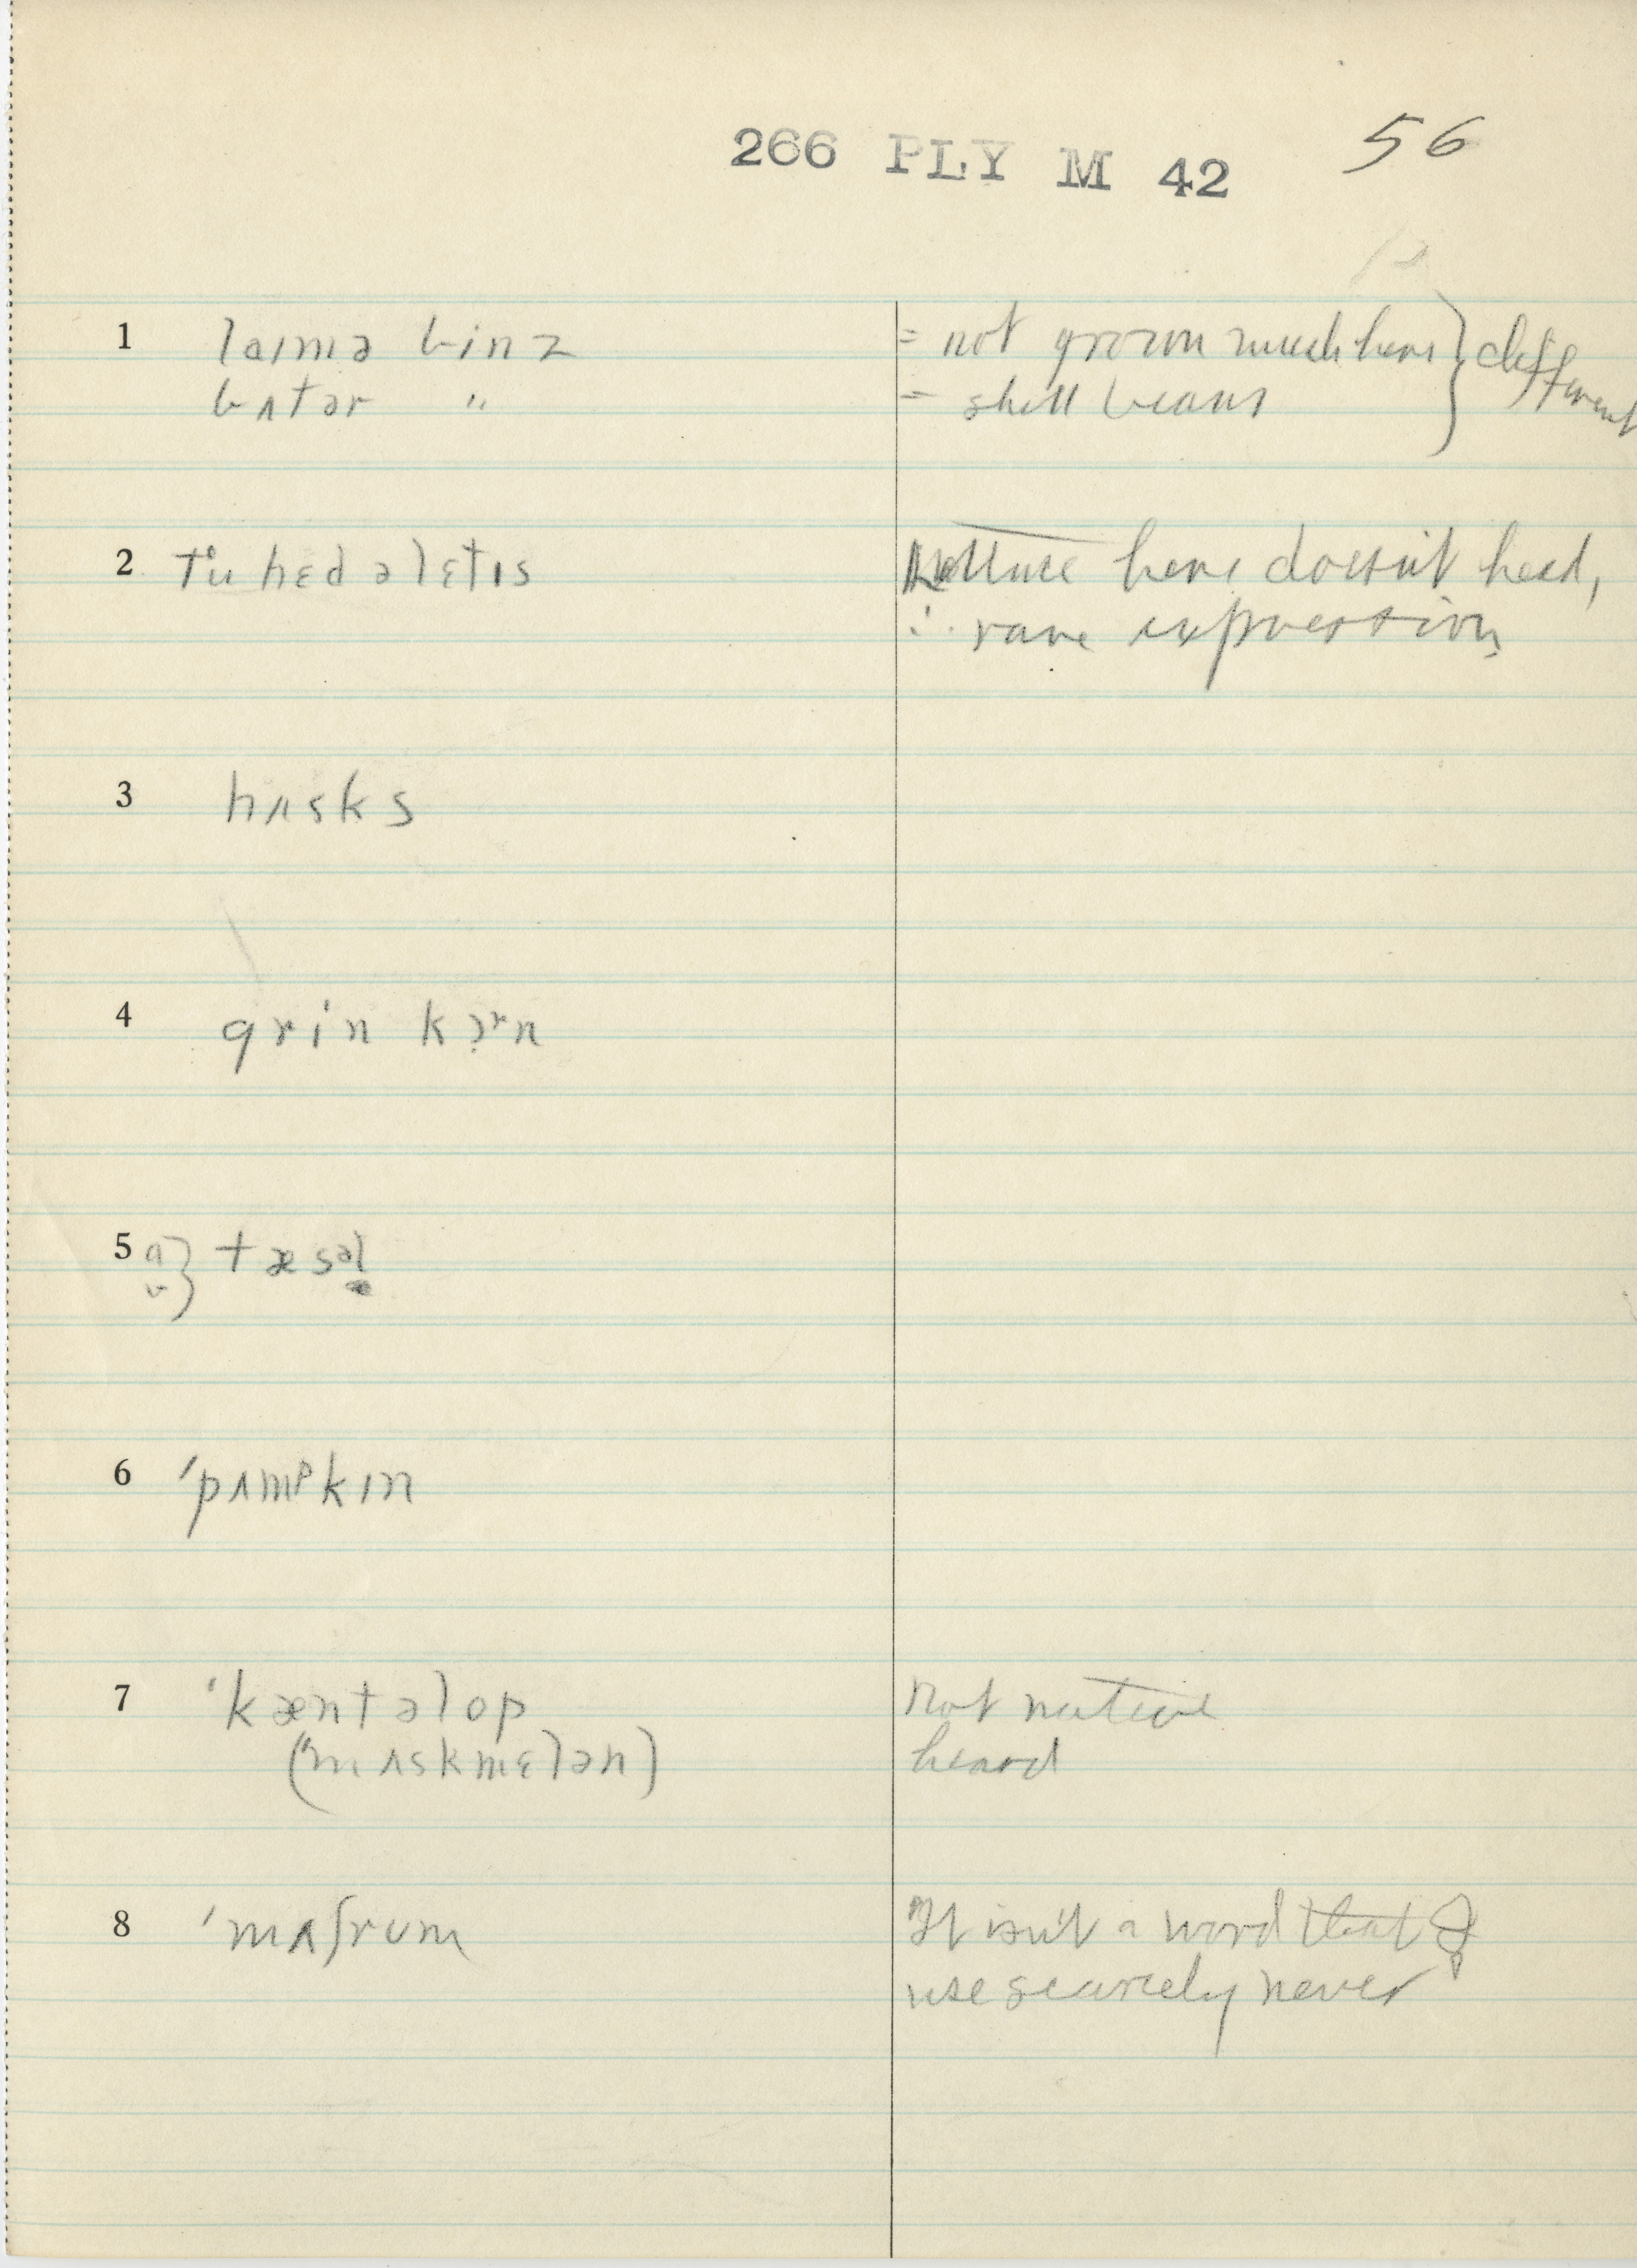 266 PLY M 42 56
1 laɪmə binz = not grown much here } different
bʌtər " = shell beans
2 tu hɛd ə lɛtɪs Lettuce here doesn't head,
∴ rare expression
3 hʌsks
4 grin kɔrn
5 a} tæsəl
b}
6 'pʌmᵖkɪn
7 'kæntəlop not native
('mʌskmɛlən) heard
8 'mʌʃrum It isn't a word that I
use scarcely never